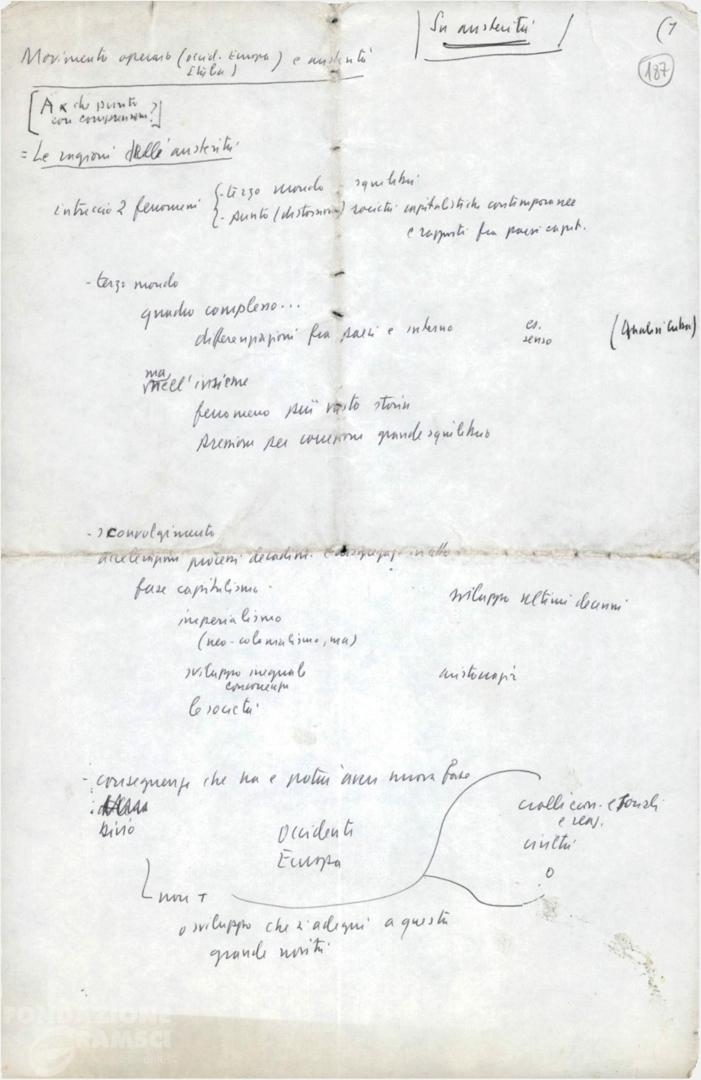 Su austerità
(1
187
Movimento operaio (occid. Europa) e austerità
Italia)
A che punto
con comprensione?
= Le ragioni dell'austerità
intreccio 2 fenomeni - terzo mondo squilibri
- punto (distorsioni) società capitalistiche contemporanee
e rapporti fra paesi capit.
- terzo mondo
quadro complesso...
differenziazioni fra paesi e interno es.
senso
(Analisi Cuba)
ma,
nell'insieme
fenomeno più vasto storia
pressioni per correzione grande squilibrio
- sconvolgimento
accelerazioni processi decadim. in atto
fase capitalismo
sviluppo ultimi decenni
imperialismo
(neo-colonialismo, ma)
sviluppo ineguale
concorrenza
le società
- conseguenze che ha e potrà avere nuova fase
bivio
Occidente
Europa
crolli econ. e sociali
civiltà
o
non +
o sviluppo che si adegui a questa
grande novità
FONDAZIONE
GRAMSCI